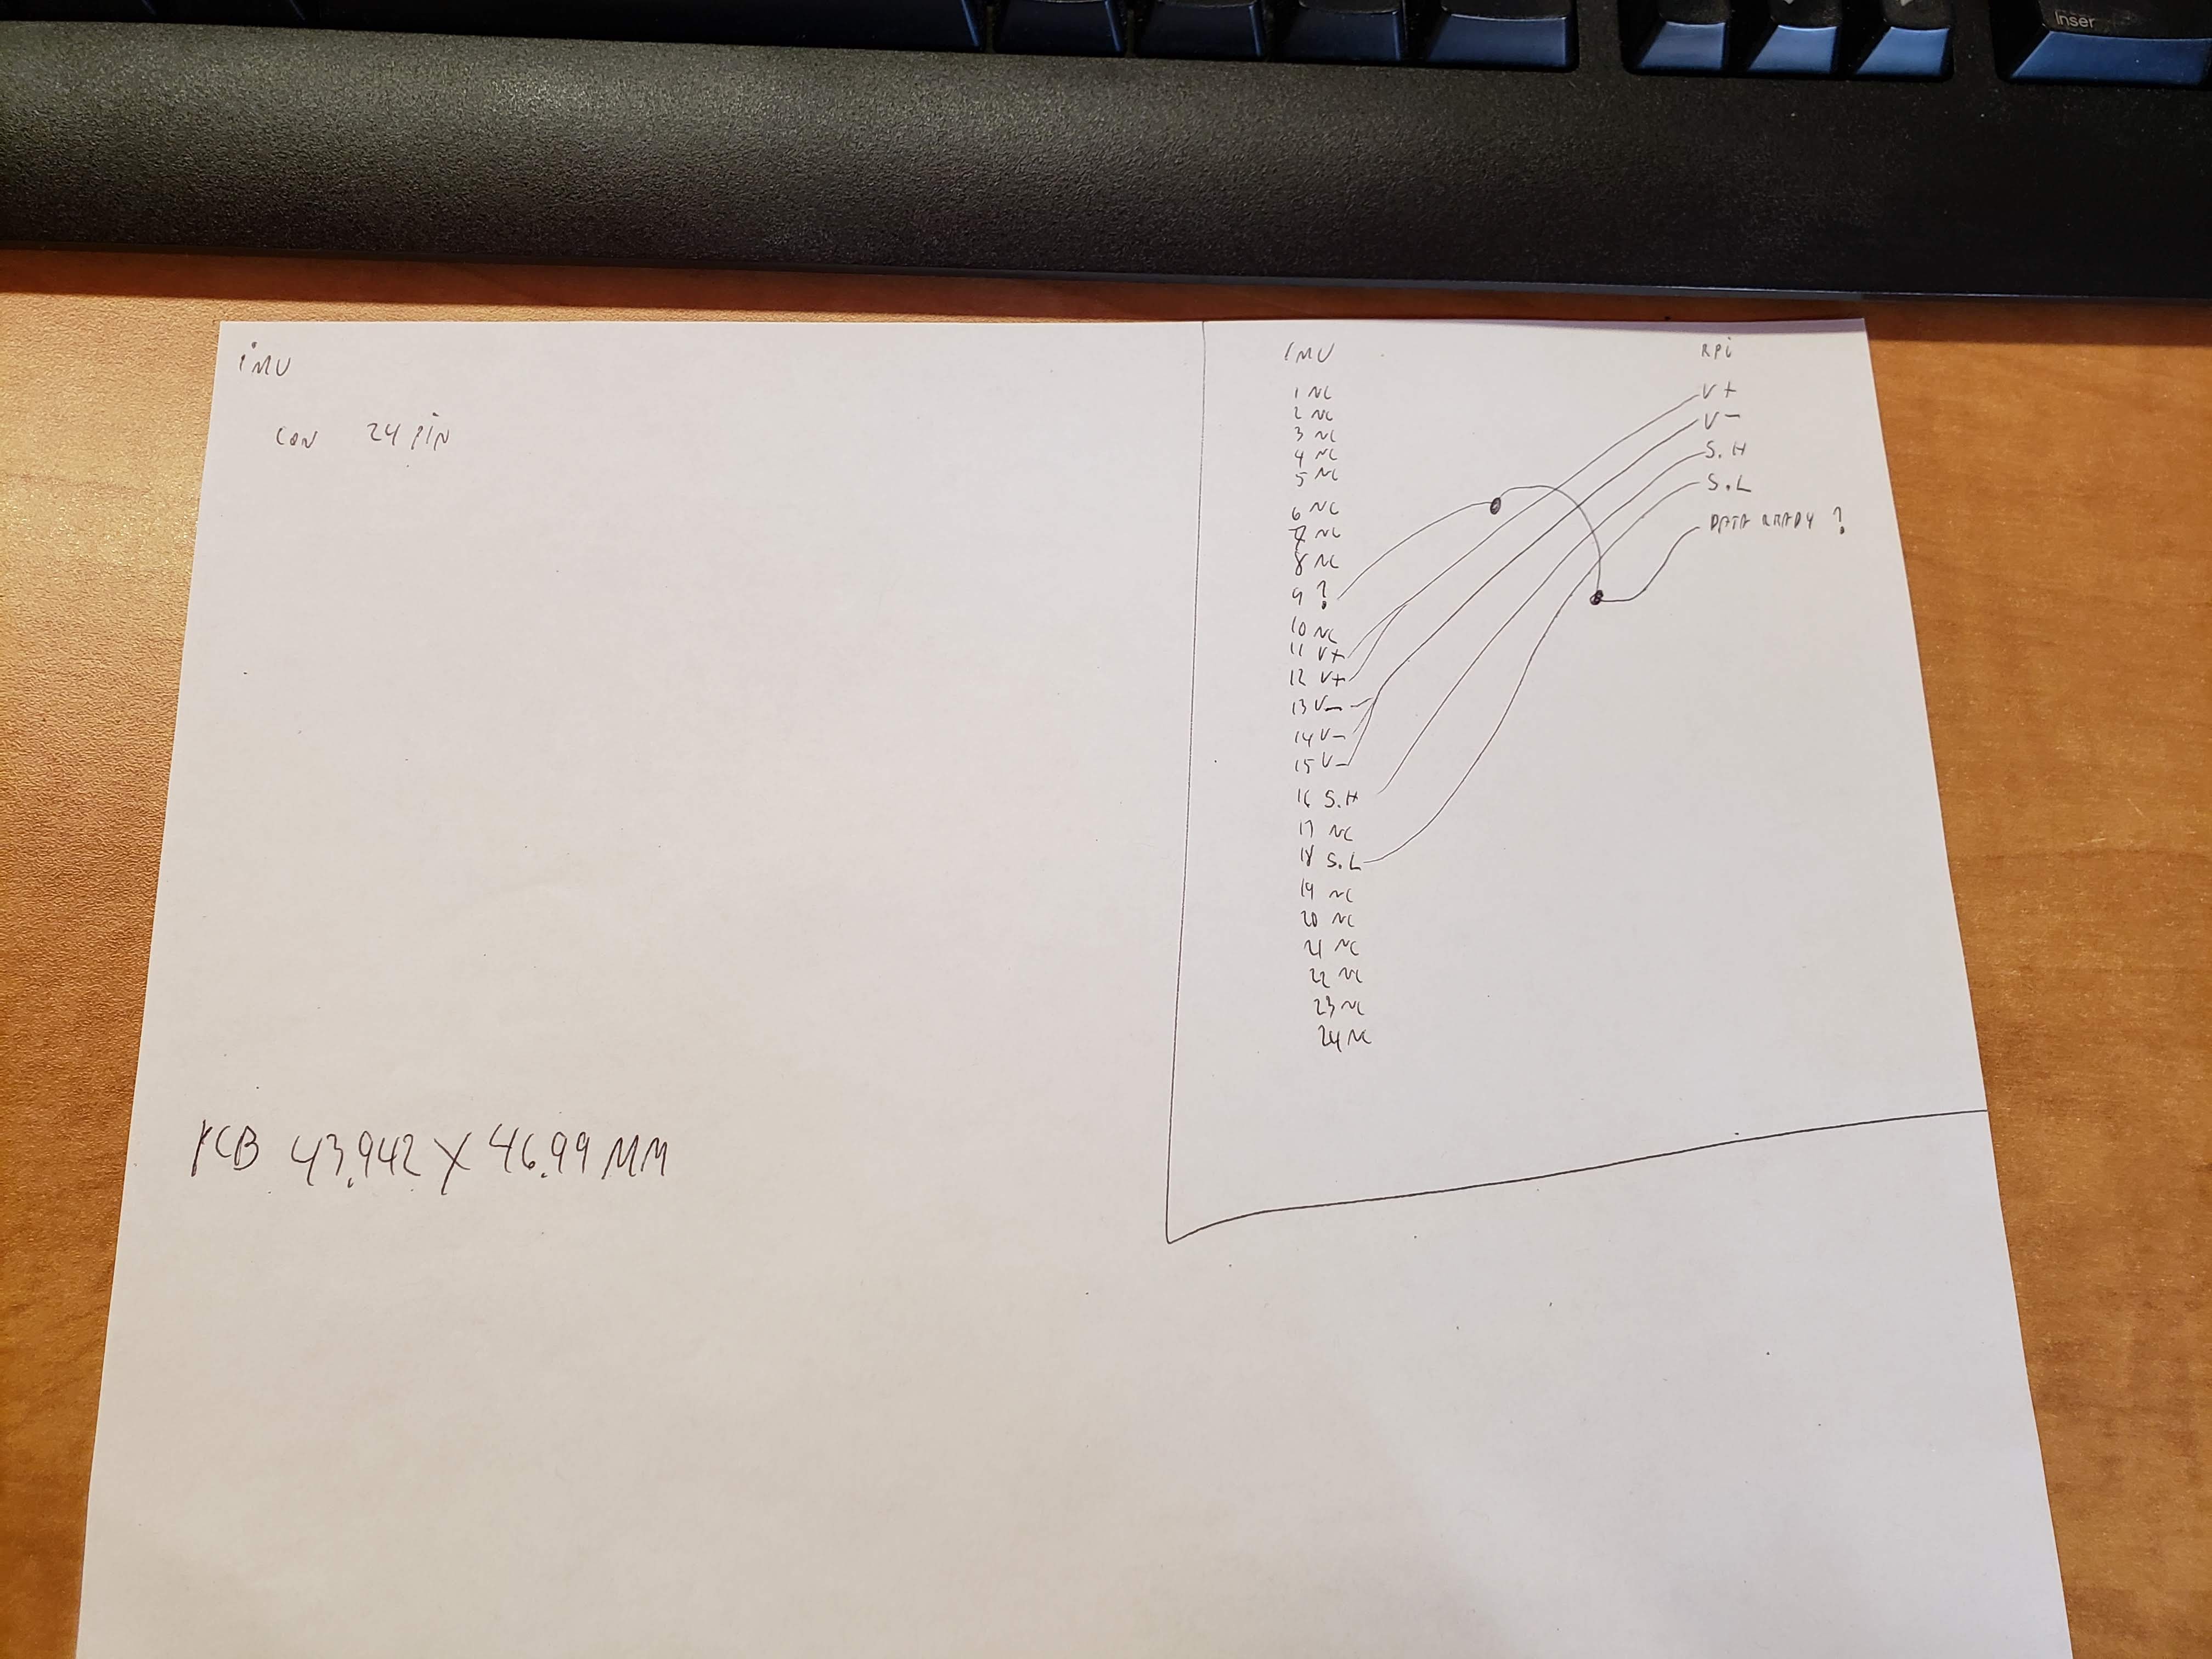 iMU
CON 24 PIN
PCB 43.942 X 46.99 MM
IMU
1 NC
2 NC
3 NC
4 NC
5 NC
6 NC
7 NC
8 NC
9 ?
10 NC
11 V+
12 V+
13 V-
14 V-
15 V-
16 S.H
17 NC
18 S.L
19 NC
20 NC
21 NC
22 NC
23 NC
24 NC
RPi
V+
V-
S.H
S.L
DATA READY ?
Inser